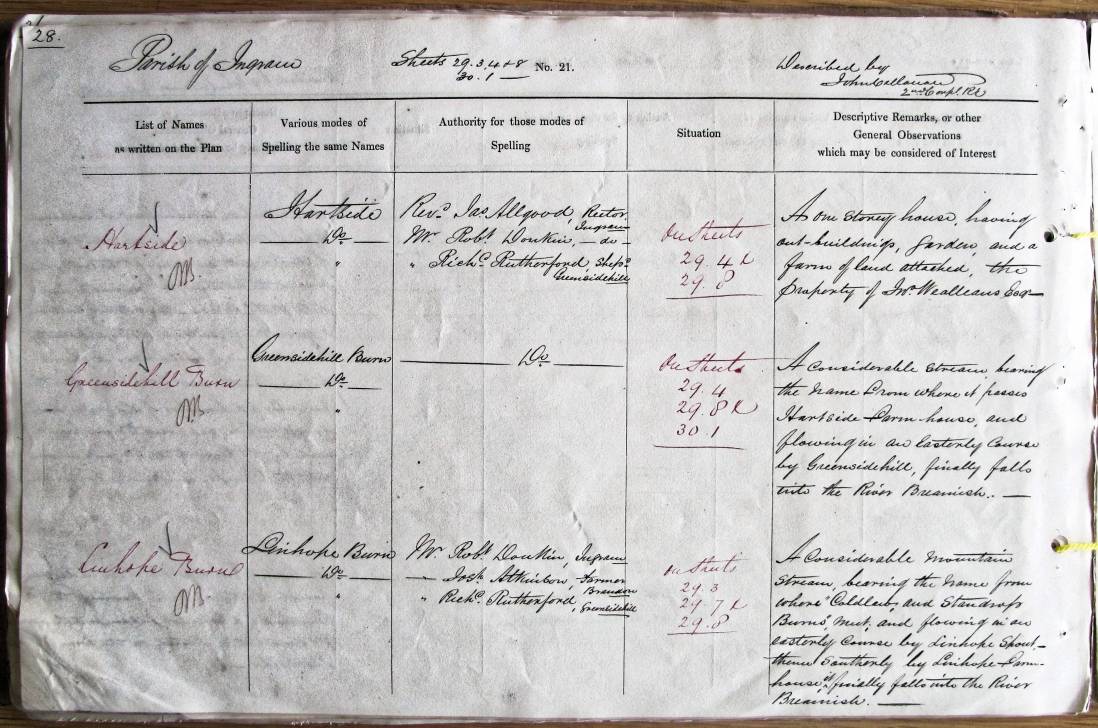 28.
Parish of Ingram
Sheets 29.3,4+8
30.1 —
No. 21.
Described by
John Callanan
2nd Corpl. RE
List of Names
as written on the Plan
Various modes of
Spelling the same Names
Authority for those modes of
Spelling
Situation
Descriptive Remarks, or other
General Observations
which may be considered of Interest
Hartside
Hartside
Do
"
Revd. Jas. Allgood, Rector
Ingram
Mr. Robt. Donkin, — do —
" Richd. Rutherford, Shepd.
Greensidehill
On Sheets
29.4
29.8
A one storey house, having
out-buildings, garden, and a
farm of land attached, the
property of Jno. Wealleans Esqr —
Greensidehill Burn
Greensidehill Burn
Do
"
Do
On Sheets
29.4
29.8
30.1
A Considerable stream, bearing
the name from where it passes
Hartside Farm house, and
flowing in an easterly course
by Greensidehill, finally falls
into the River Breamish. —
Linhope Burn
Linhope Burn
Do
"
Mr Robt Donkin, Ingram
— Josh Atkinson, Farmer
Brandon
" Richd. Rutherford, Greensidehill
On Sheets
29.3
29.7
29.8
A Considerable Mountain
Stream, bearing the name from
where "Coldlaw, and Standrop
Burns", meet, and flowing in an
easterly course by Linhope Spout, –
thence Southerly by Linhope Farm-
house, & finally falls into the River
Breamish. —